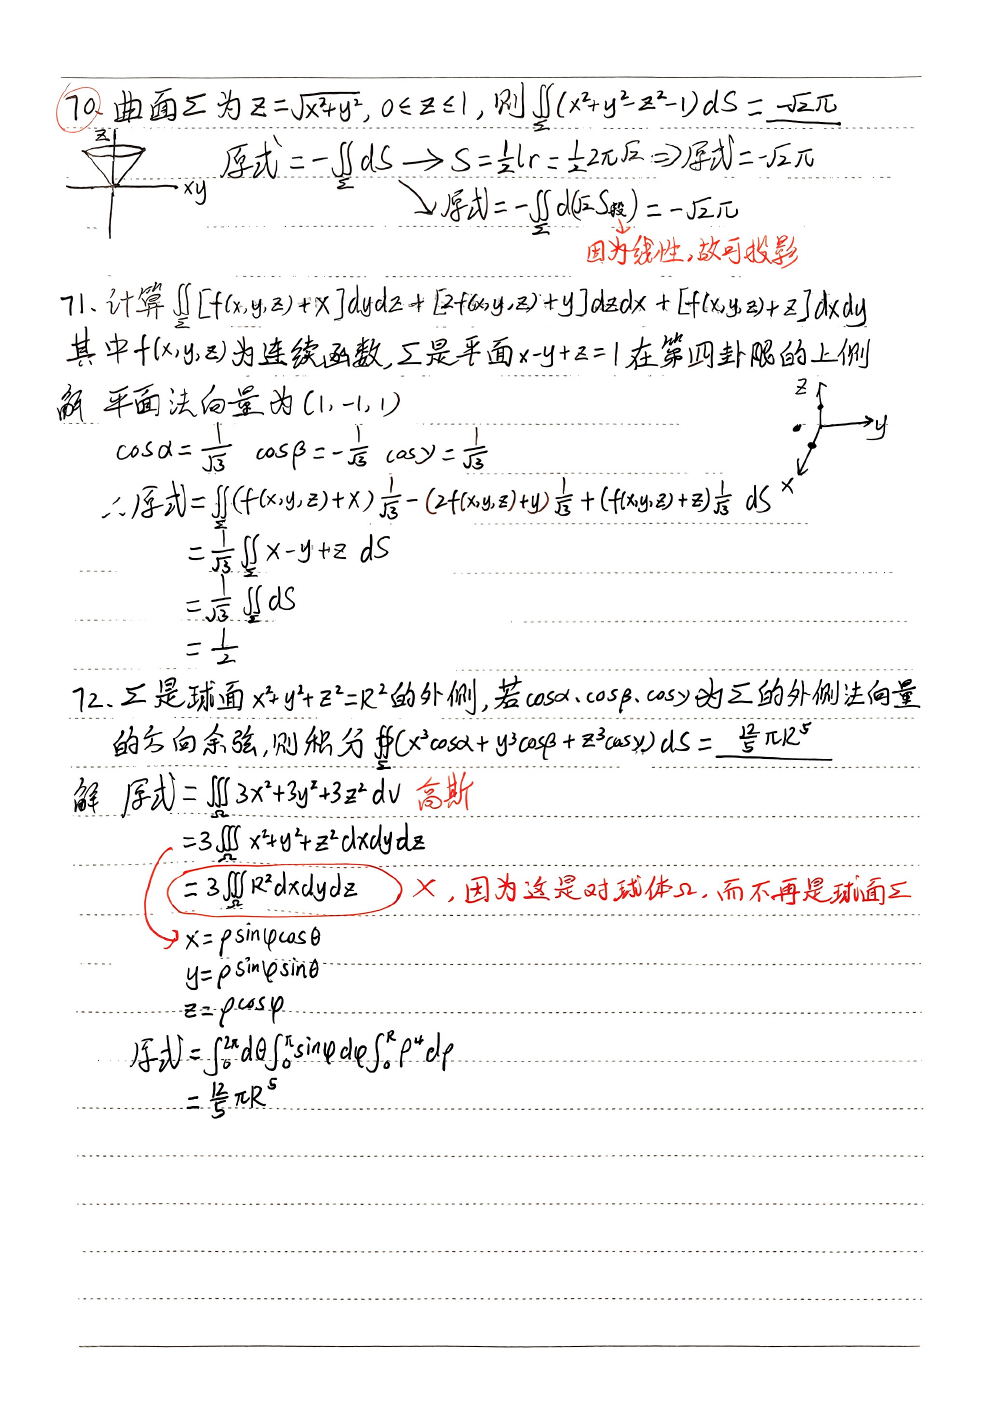 70. 曲面Σ为 z=√(x²+y²), 0≤z≤1, 则∬_Σ(x²+y²-z²-1)dS = -√2π
z
原式 = -∬_Σ dS → S=½lr=½2π√2 ⇒ 原式=-√2π
xy
↘ 原式=-∬_Σ d(√2 S投) = -√2π
因为线性,故可投影
71. 计算∬_Σ [f(x,y,z)+x]dydz+[2f(x,y,z)+y]dzdx+[f(x,y,z)+z]dxdy
其中f(x,y,z)为连续函数,Σ是平面x-y+z=1在第四卦限的上侧
解 平面法向量为(1,-1,1)
z
y
x
cosα=1/√3 cosβ=-1/√3 cosγ=1/√3
∴原式=∬_Σ(f(x,y,z)+x)1/√3-(2f(x,y,z)+y)1/√3+(f(x,y,z)+z)1/√3 dS
=1/√3∬_Σ x-y+z dS
=1/√3∬_Σ dS
=1/2
72. Σ是球面x²+y²+z²=R²的外侧,若cosα、cosβ、cosγ为Σ的外侧法向量
的方向余弦,则积分∯_Σ(x³cosα+y³cosβ+z³cosγ)dS= 12/5 πR⁵
解 原式=∭_Ω 3x²+3y²+3z² dv 高斯
=3∭_Ω x²+y²+z² dxdydz
=3∭_Ω R²dxdydz ×,因为这是对球体Ω,而不再是球面Σ
x=ρsinφcosθ
y=ρsinφsinθ
z=ρcosφ
原式=∫₀^2π dθ∫₀^π sinφdφ∫₀^R ρ⁴dρ
=12/5 πR⁵